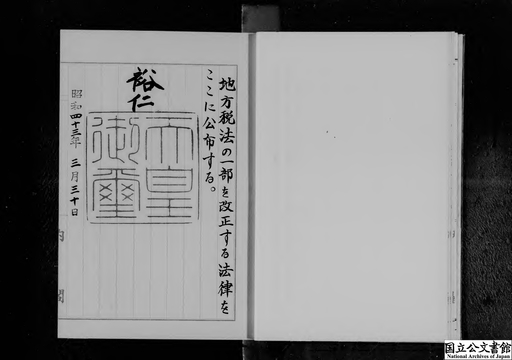 地方税法の一部を改正する法律を
ここに公布する。
裕仁
天皇
御璽
昭和四十三年三月三十日
内閣
国立公文書館
National Archives of Japan